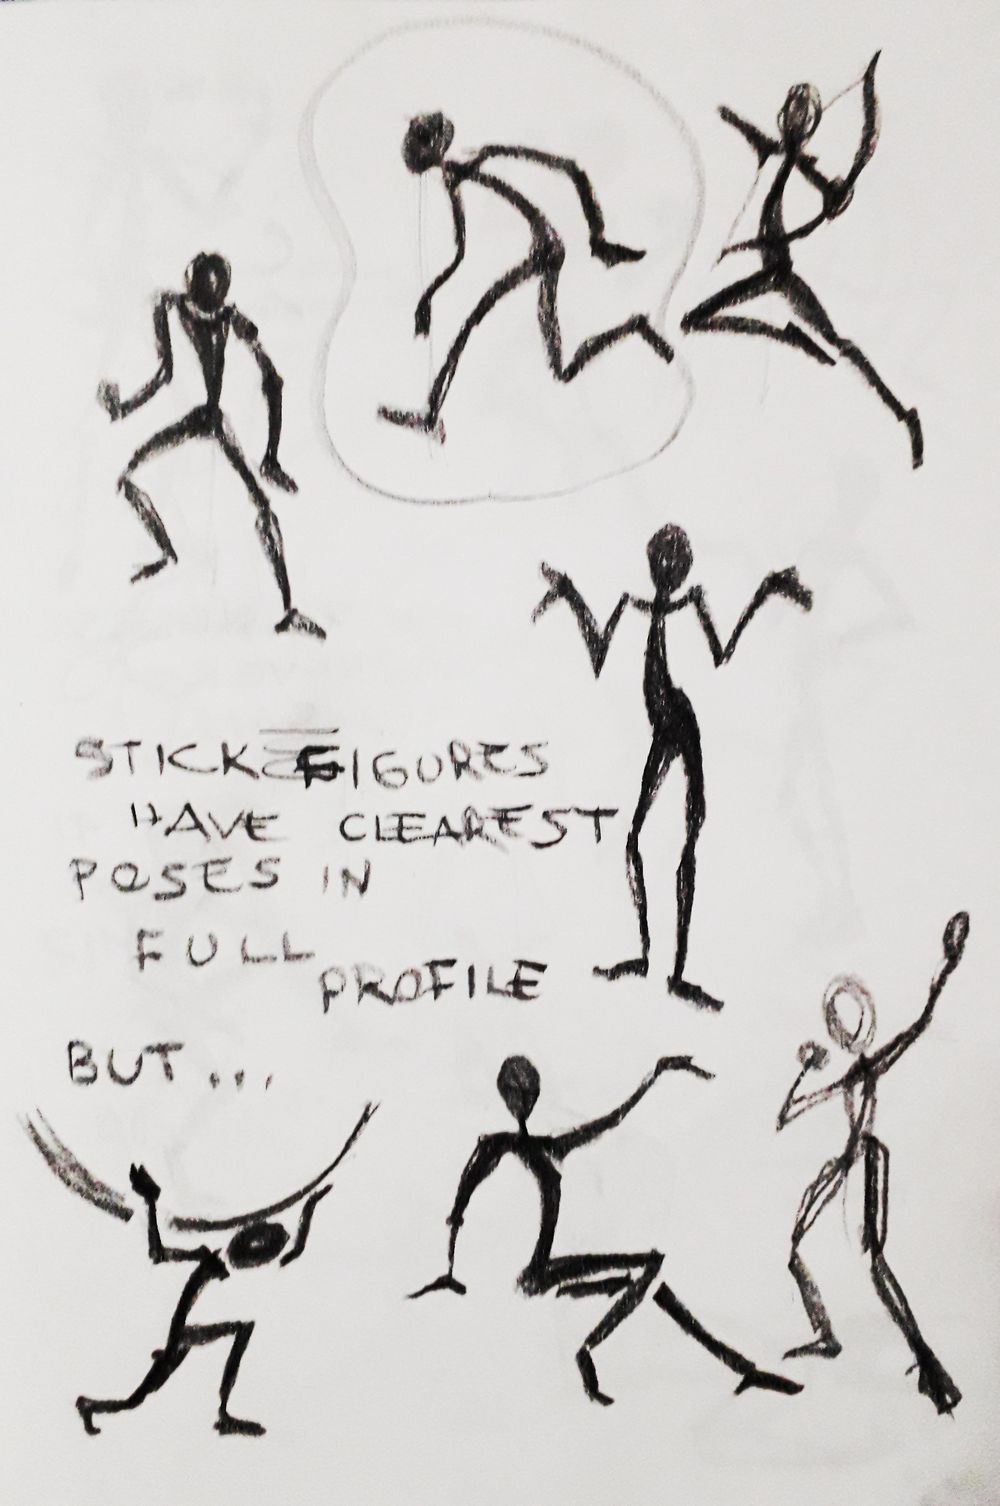 STICK FIGURES
HAVE CLEAREST
POSES IN
FULL
PROFILE
BUT...